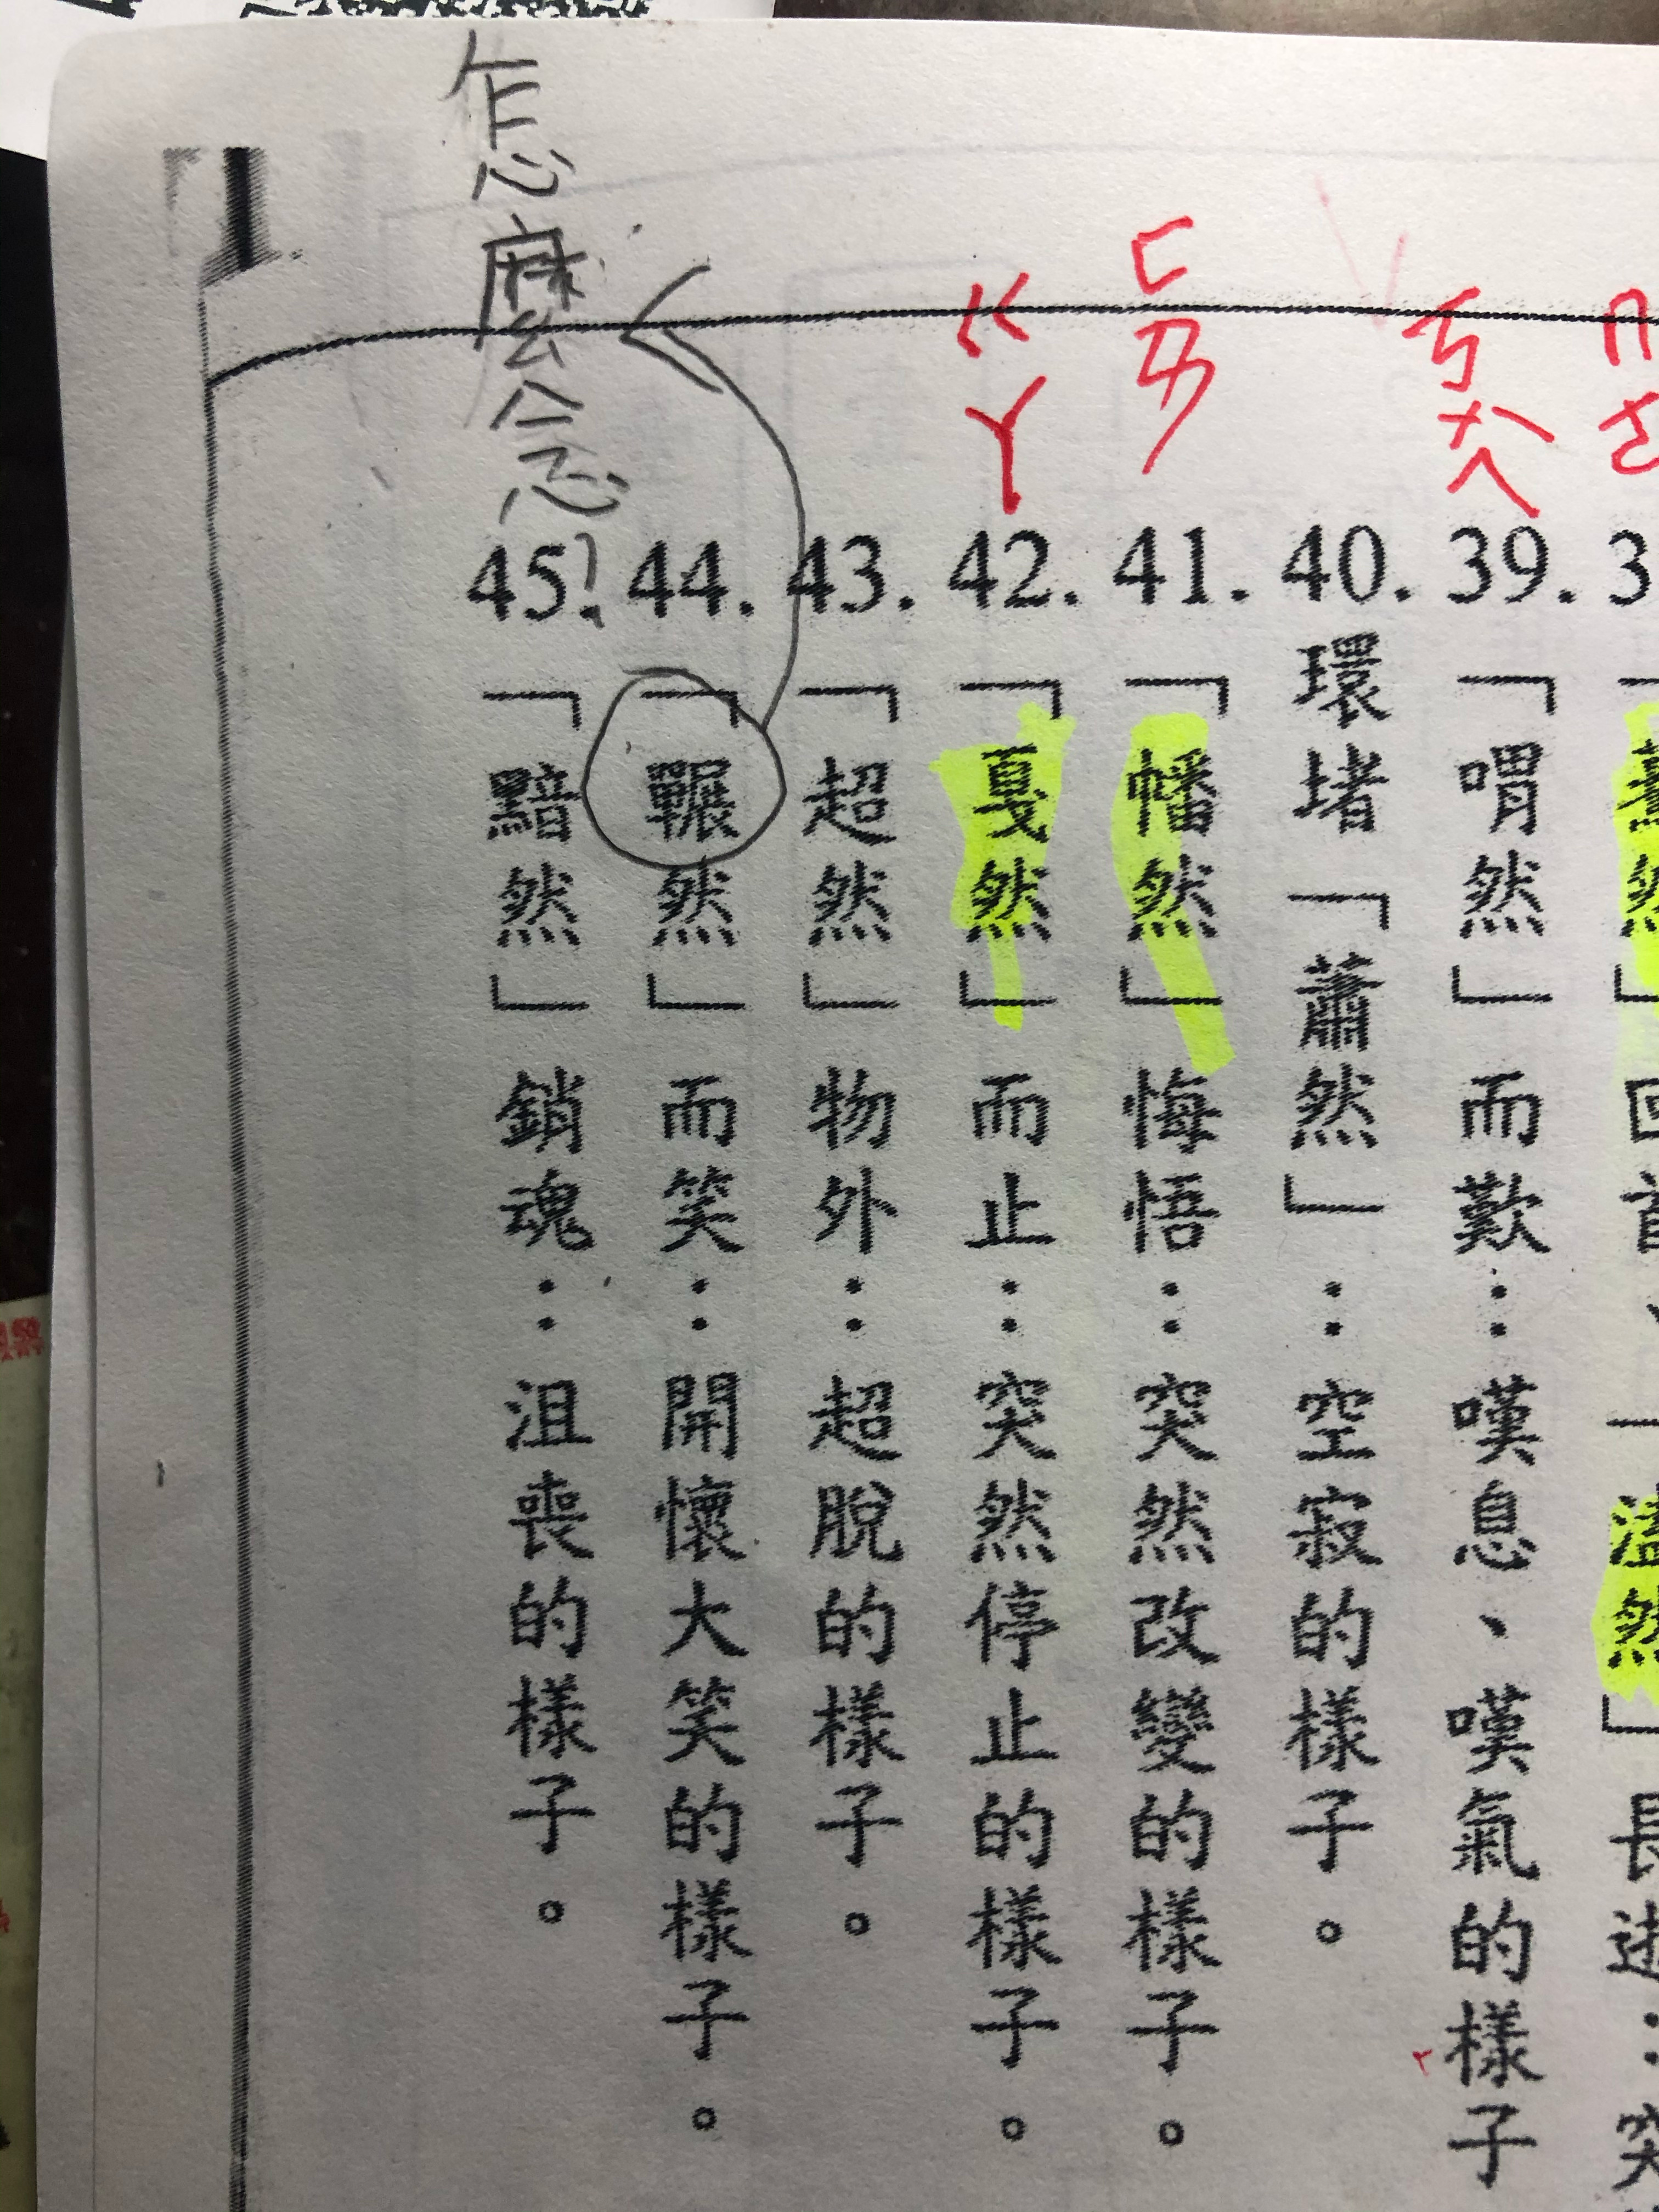 ㄎㄨㄟ
39.「喟然」而歎：嘆息、嘆氣的樣子
40.環堵「蕭然」：空寂的樣子。
ㄈㄢ
41.「幡然」悔悟：突然改變的樣子。
ㄚ
42.「戛然」而止：突然停止的樣子。
43.「超然」物外：超脫的樣子。
44.「囅然」而笑：開懷大笑的樣子。
怎麼念?
45.「黯然」銷魂：沮喪的樣子。